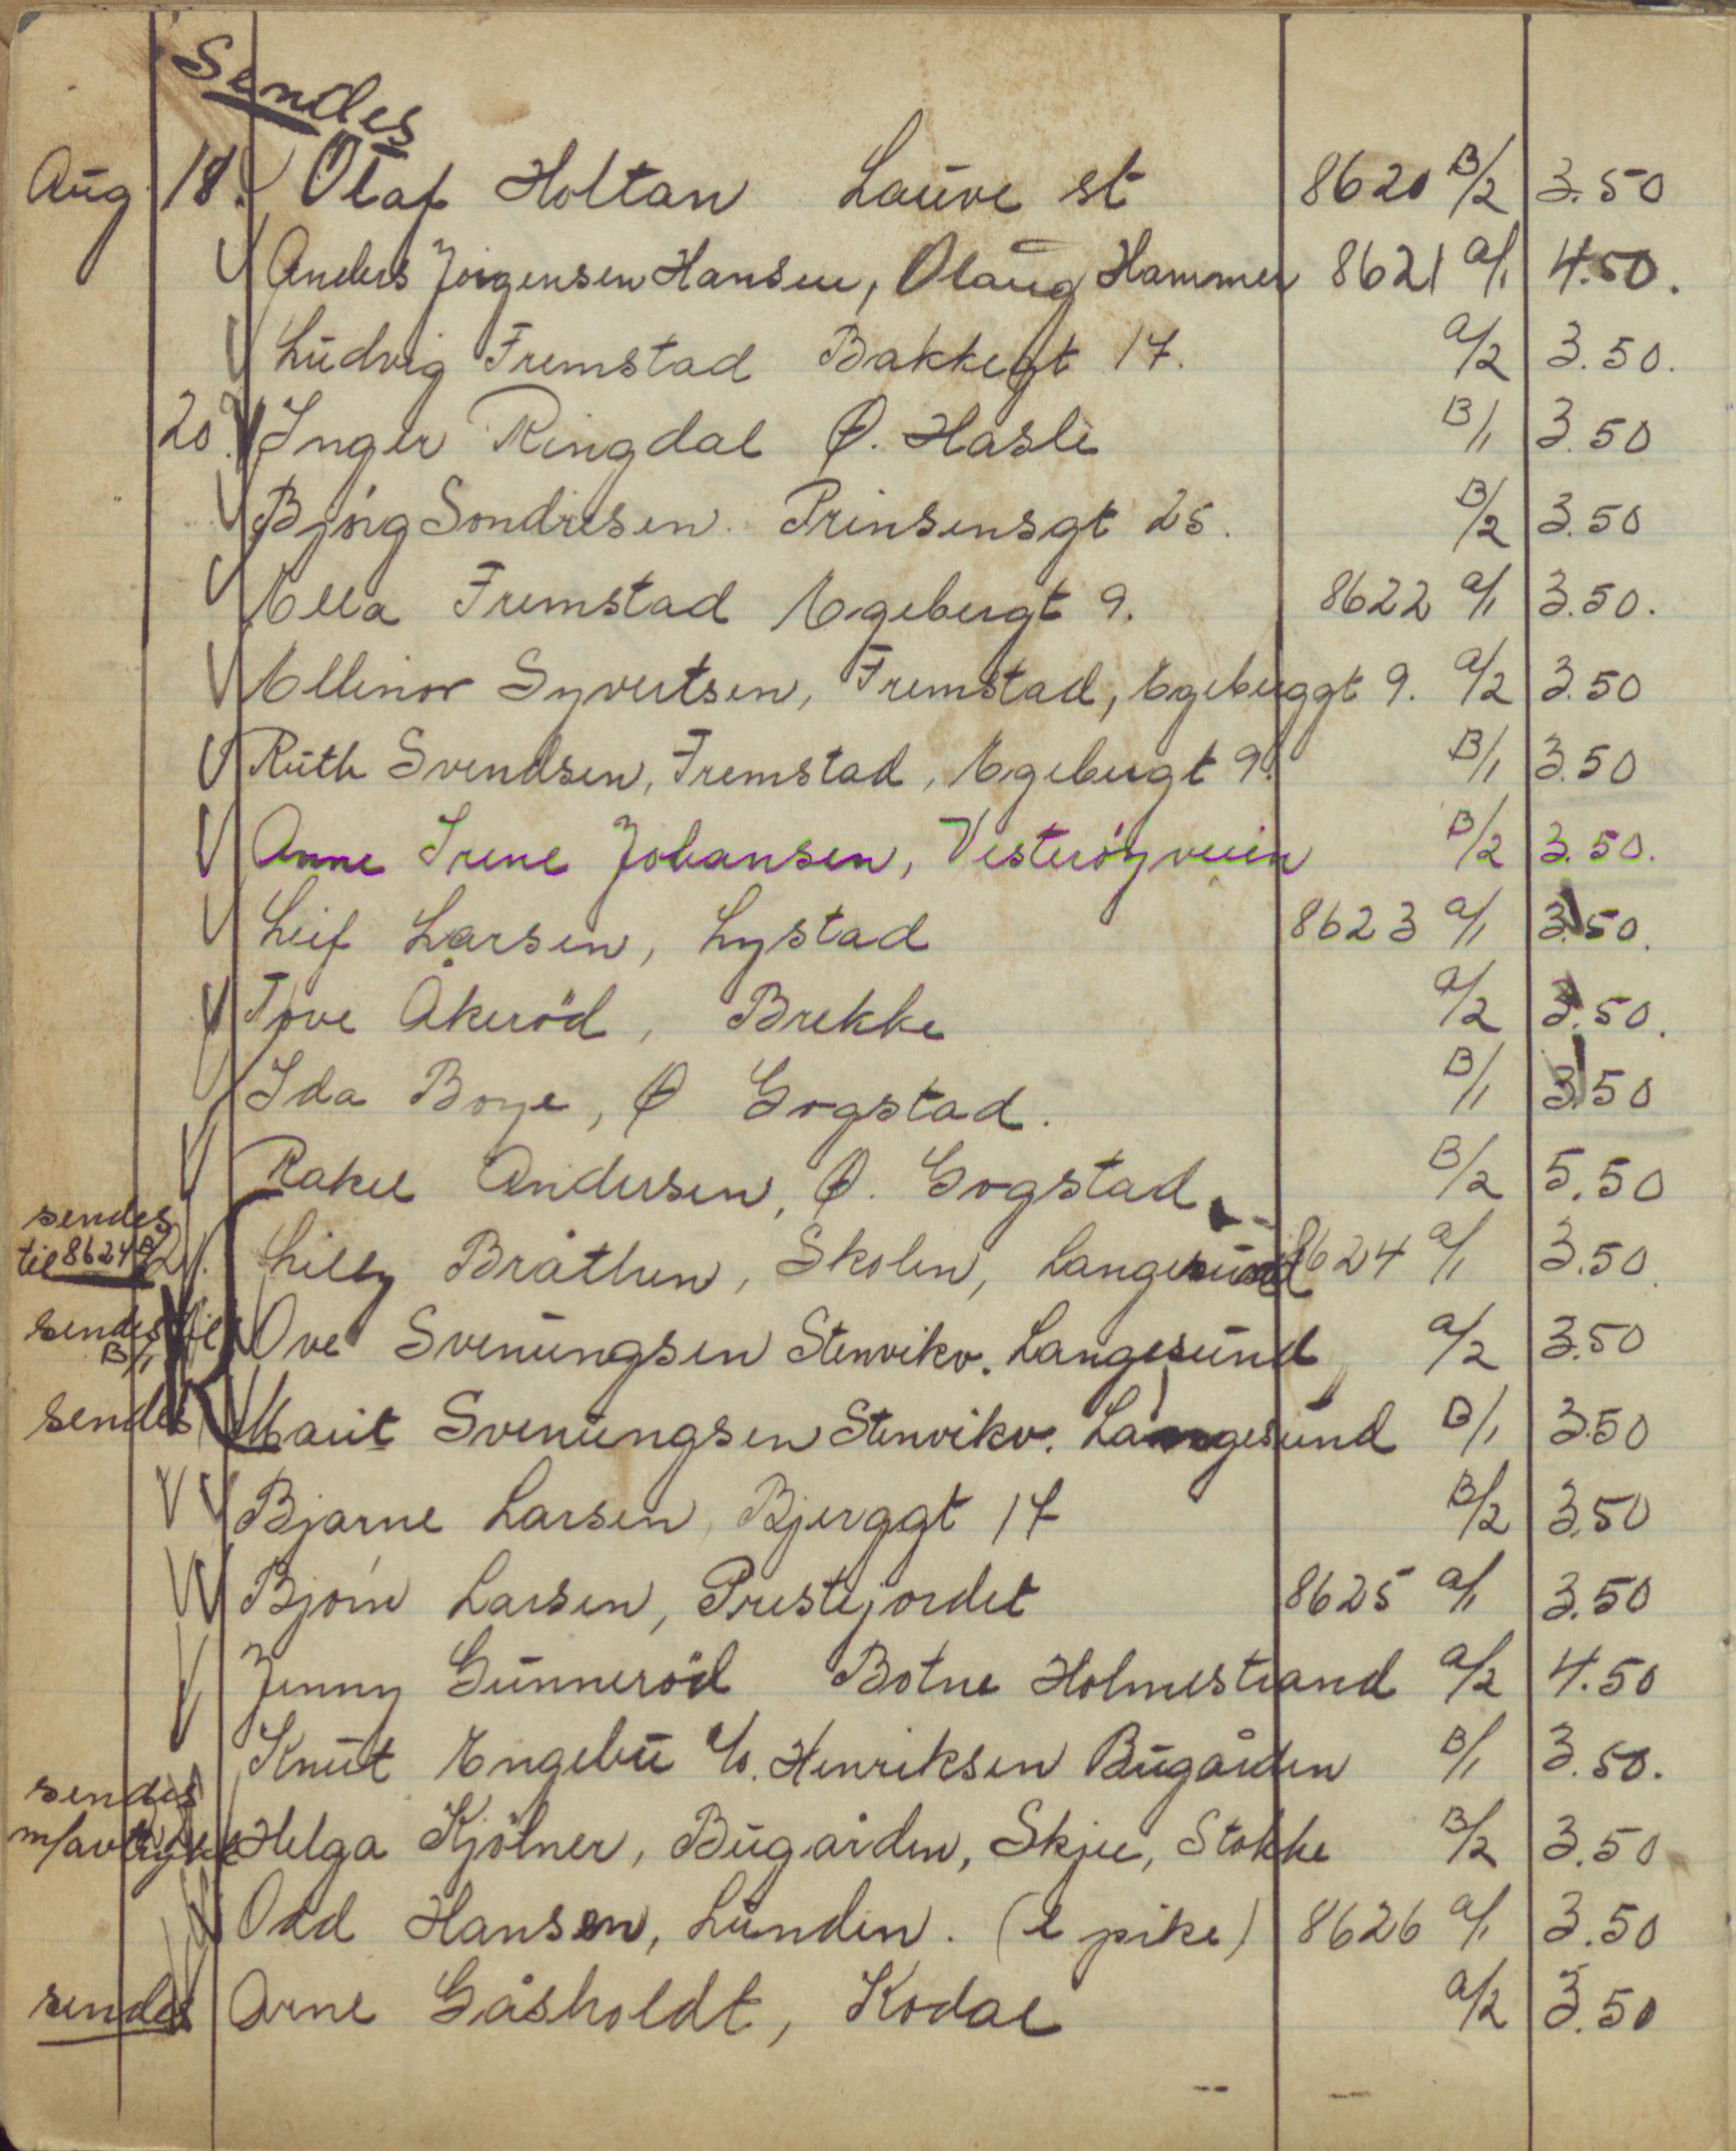 Sendes
Aug 18. Olaf Holtan Lauve st 8620 B/2 3.50
Anders Jörgensen Hansen, Olaug Hammer 8621 a/1 4.50.
Ludvig Fremstad Bakkegt 17. a/2 3.50.
20. Inger Ringdal Ø. Hasle B/1 3.50
Bjórg Sondresen. Prinsensgt 25. B/2 3.50
Ella Fremstad Egebergt 9. 8622 a/1 3.50.
Ellinor Syvertsen, Fremstad, Egeberggt 9. a/2 3.50
Ruth Svendsen, Fremstad, Egebergt 9. B/1 3.50
Anne Irene Johansen, Vesteróyveien B/2 3.50.
Leif Larsen, Lystad 8623 a/1 3.50.
Tove Åkeröd, Brekke a/2 3.50.
Ida Boye, Ø Gogstad. B/1 3.50
Rakel Andersen, Ø. Gogstad. B/2 5.50
sendes
til 8624 B/2 21. Lilly Bråthen, Skolen, Langesund 8624 a/1 3.50.
sendes til
B/1 Ove Svenungsen Stenvikv. Langesund a/2 3.50
sendes Marit Svenungsen Stenvikv. Langesund B/1 3.50
Bjarne Larsen, Bjerggt 17 B/2 3.50
Bjórn Larsen, Prestejordet 8625 a/1 3.50
Jenny Gunneröd Botne Holmestrand a/2 4.50
Knut Engebu c/o. Henriksen Bugården B/1 3.50.
sendes
m/avtrykk Helga Kjölner, Bugården, Skjee, Stokke B/2 3.50
Odd Hansen, Lunden. (e pike) 8626 a/1 3.50
sendes Arne Gåsholdt, Kodal a/2 3.50